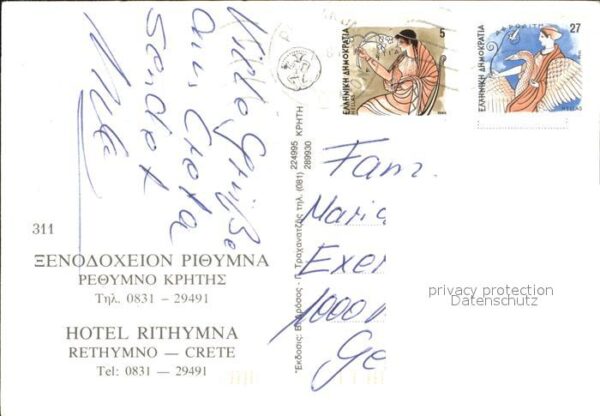 Viele Grüße
aus Creta
sendet
311
ΞΕΝΟΔΟΧΕΙΟΝ ΡΙΘΥΜΝΑ
ΡΕΘΥΜΝΟ ΚΡΗΤΗΣ
Τηλ. 0831 — 29491
HOTEL RITHYMNA
RETHYMNO — CRETE
Tel: 0831 — 29491
τηλ. (081) 224995 ΚΡΗΤΗ
289930
5
ΕΛΛΗΝΙΚΗ ΔΗΜΟΚΡΑΤΙΑ
HELLAS
27
ΑΦΡΟΔΙΤΗ
ΕΛΛΗΝΙΚΗ ΔΗΜΟΚΡΑΤΙΑ
HELLAS
Fam.
Maria
Exer
1000
Ge
privacy protection
Datenschutz